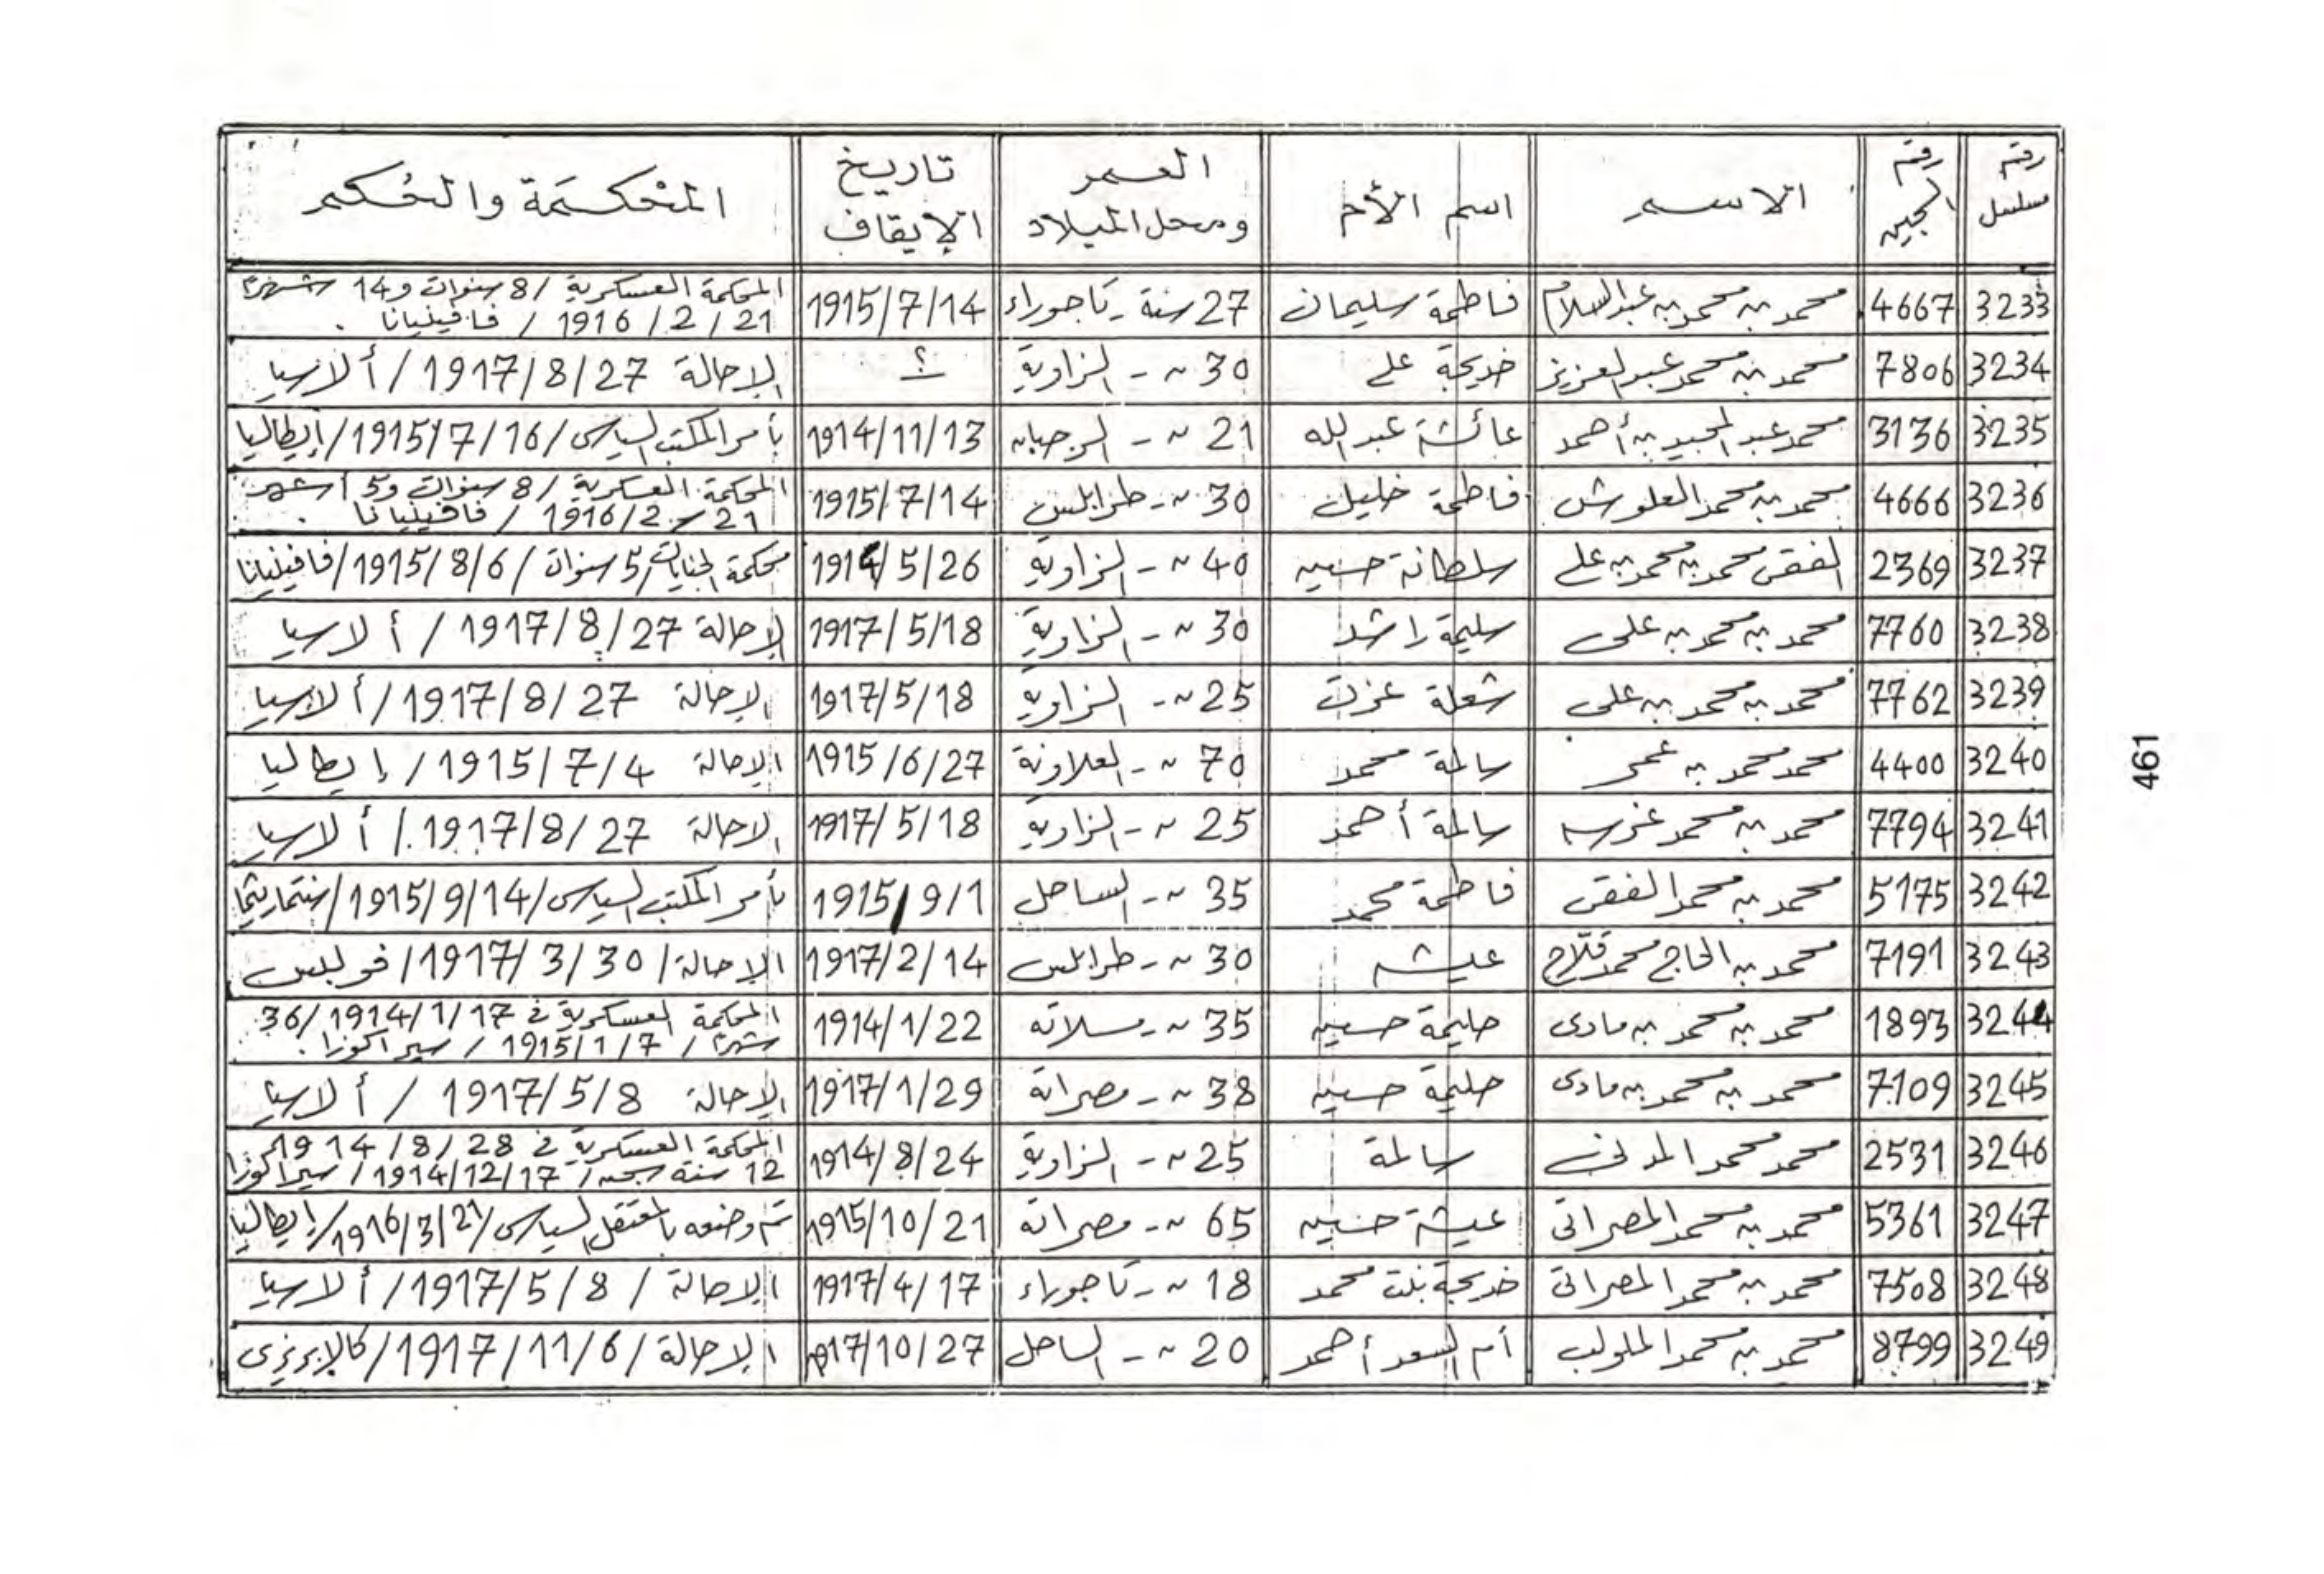 رقم مسلسل | رقم السجين | الاسم | اسم الأم | العمر ومحل الميلاد | تاريخ الإيقاف | المحكمة والحكم
3233 | 4667 | محمد بن محمد بن عبد السلام | فاطمة سليمان | 27 سنة - تاجوراء | 1915/7/14 | المحكمة العسكرية / 8 سنوات و 14 شهرًا
21 / 2 / 1916 / فافينيانا .
3234 | 7806 | محمد بن محمد عبد العزيز | خديجة علي | 30 ~ - الزاوية | ؟ | الإحالة 27 / 8 / 1917 / ألاسيا
3235 | 3136 | محمد عبد المجيد بن أحمد | عائشة عبد الله | 21 ~ - الرجبان | 1914/11/13 | بأمر المكتب السياسى / 16 / 7 / 1915 / إيطاليا
3236 | 4666 | محمد بن محمد العلوش | فاطمة خليل | 30 ~ - طرابلس | 1915/7/14 | المحكمة العسكرية / 8 سنوات و 5 أشهر
21 / 2 / 1916 / فافينيانا .
3237 | 2369 | الفقى محمد بن محمد بن علي | سلطانة حسين | 40 ~ - الزاوية | 1914/5/26 | محكمة الجنايات / 5 سنوات / 6 / 8 / 1915 / فافينيانا
3238 | 7760 | محمد بن محمد بن على | سليمة راشد | 30 ~ - الزاوية | 1917/5/18 | الإحالة 27 / 8 / 1917 / ألاسيا
3239 | 7762 | محمد بن محمد بن على | شعلة عزت | 25 ~ - الزاوية | 1917/5/18 | الإحالة 27 / 8 / 1917 / ألاسيا
3240 | 4400 | محمد محمد بن عمر | سالمة محمد | 70 ~ - العلاونة | 1915/6/27 | الإحالة 4 / 7 / 1915 / إيطاليا
3241 | 7794 | محمد بن محمد غرسه | سالمة أحمد | 25 ~ - الزاوية | 1917/5/18 | الإحالة 27 / 8 / 1917 / ألاسيا
3242 | 5175 | محمد بن محمد الفقى | فاطمة محمد | 35 ~ - الساحل | 1915/9/1 | بأمر المكتب السياسى / 14 / 9 / 1915 /
3243 | 7191 | محمد بن الحاج محمد فلّاح | عيشه | 30 ~ - طرابلس | 1917/2/14 | الإحالة / 30 / 3 / 1917 /
3244 | 1893 | محمد بن محمد بن مادى | حليمة حسين | 35 ~ - مسلاته | 1914/1/22 | المحكمة العسكرية في 17 / 1 / 1914 / 36
شهرًا / 7 / 1 / 1915 / سيراكوزا .
3245 | 7109 | محمد بن محمد بن مادى | حليمة حسين | 38 ~ - مصراتة | 1917/1/29 | الإحالة 8 / 5 / 1917 / ألاسيا
3246 | 2531 | محمد محمد المدنى | سالمة | 25 ~ - الزاوية | 1914/8/24 | المحكمة العسكرية في 28 / 8 / 1914
12 سنة سجن / 17 / 12 / 1914 / سيراكوزا
3247 | 5361 | محمد بن محمد المصراتى | عيشة حسين | 65 ~ - مصراتة | 1915/10/21 | تم وضعه بالمعتقل السياسى / 21 / 3 / 1916 / إيطاليا
3248 | 7508 | محمد بن محمد المصراتى | خديجة بنت محمد | 18 ~ - تاجوراء | 1917/4/17 | الإحالة / 8 / 5 / 1917 / ألاسيا
3249 | 8799 | محمد بن محمد الملولب | أم السعد أحمد | 20 ~ - الساحل | 1917/10/27 | الإحالة / 6 / 11 / 1917 / كالابريزى
461